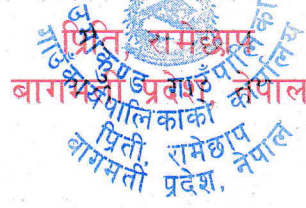 प्रिति, रामेछाप
बागमती प्रदेश, नेपाल
उमाकुण्ड गाउँपालिका
गाउँ कार्यपालिकाको कार्यालय
प्रिती, रामेछाप
बागमती प्रदेश, नेपाल